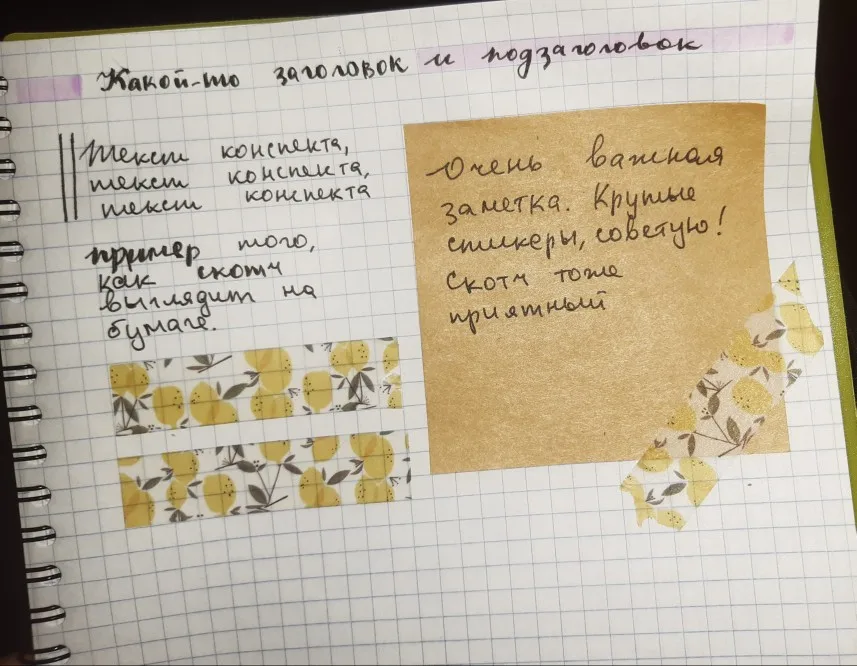 Какой-то заголовок и подзаголовок
Текст конспекта,
текст конспекта,
текст конспекта
пример того,
как скотч
выглядит на
бумаге.
Очень важная
заметка. Крутые
стикеры, советую!
Скотч тоже
приятный